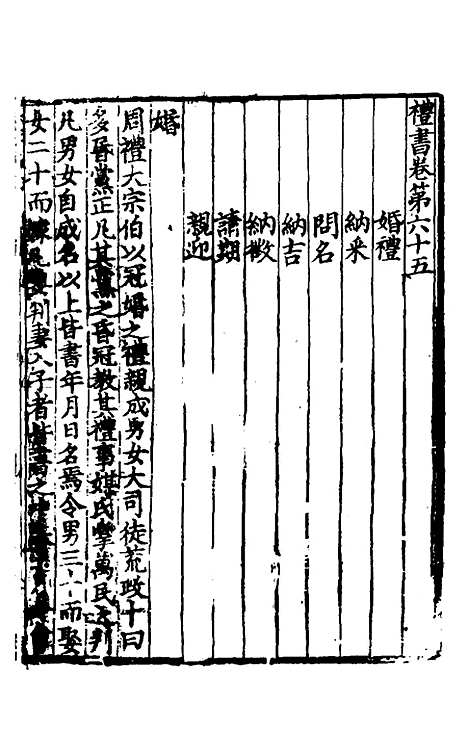 禮書卷第六十五
婚禮
納采
問名
納吉
納徵
請期
親迎
婚
周禮大宗伯以冠婚之禮親成男女大司徒荒政十曰
多昏黨正凡其黨之昏冠教其禮事媒氏掌萬民之判
凡男女自成名以上皆書年月日名焉令男三十而娶
女二十而嫁凡娶判妻入子者皆書之